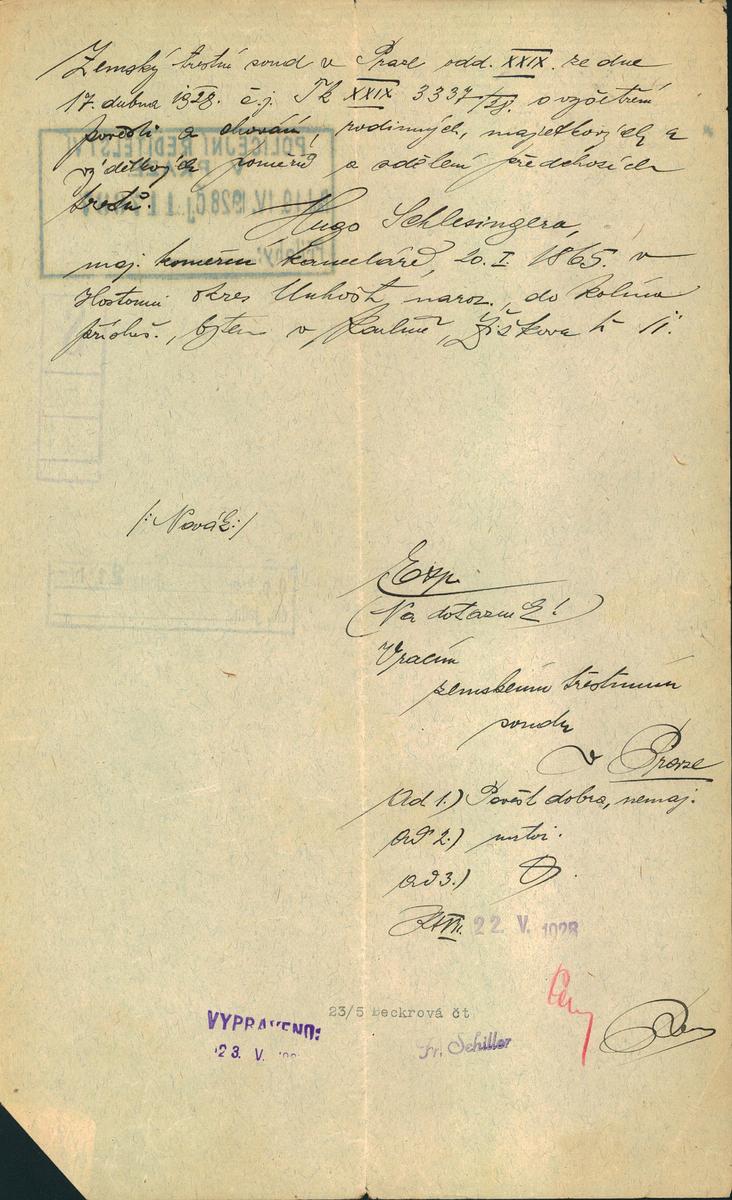 Zemský trestní soud v Praze odd. XXIX. ze dne
17. dubna 1928. č.j. Tk XXIX 3337/28. o vyšetření
pověsti a chování, rodinných, majetkových a
výdělkových poměrů a sdělení předchozích
trestů.
Hugo Schlesingera,
maj. komerční kanceláře, 20. I. 1865. v
Hostomi okres Unhošť, naroz., do Kolína
přísluš., bytem v Karlíně, Žižkova tř. 11.
POLICEJNÍ ŘEDITELSTVÍ
V PRAZE
19. IV. 1928
Přílohy:
/: Novák :/
Exp.
(Na dotazník!)
Vracím
zemskému trestnímu
soudu
v Praze
Ad 1.) Pověst dobra, nemaj.
Ad 2.)
Ad 3.)
22. V. 1928
23/5 Beckrová čt
VYPRAVENO:
23. V.
Fr. Schiller